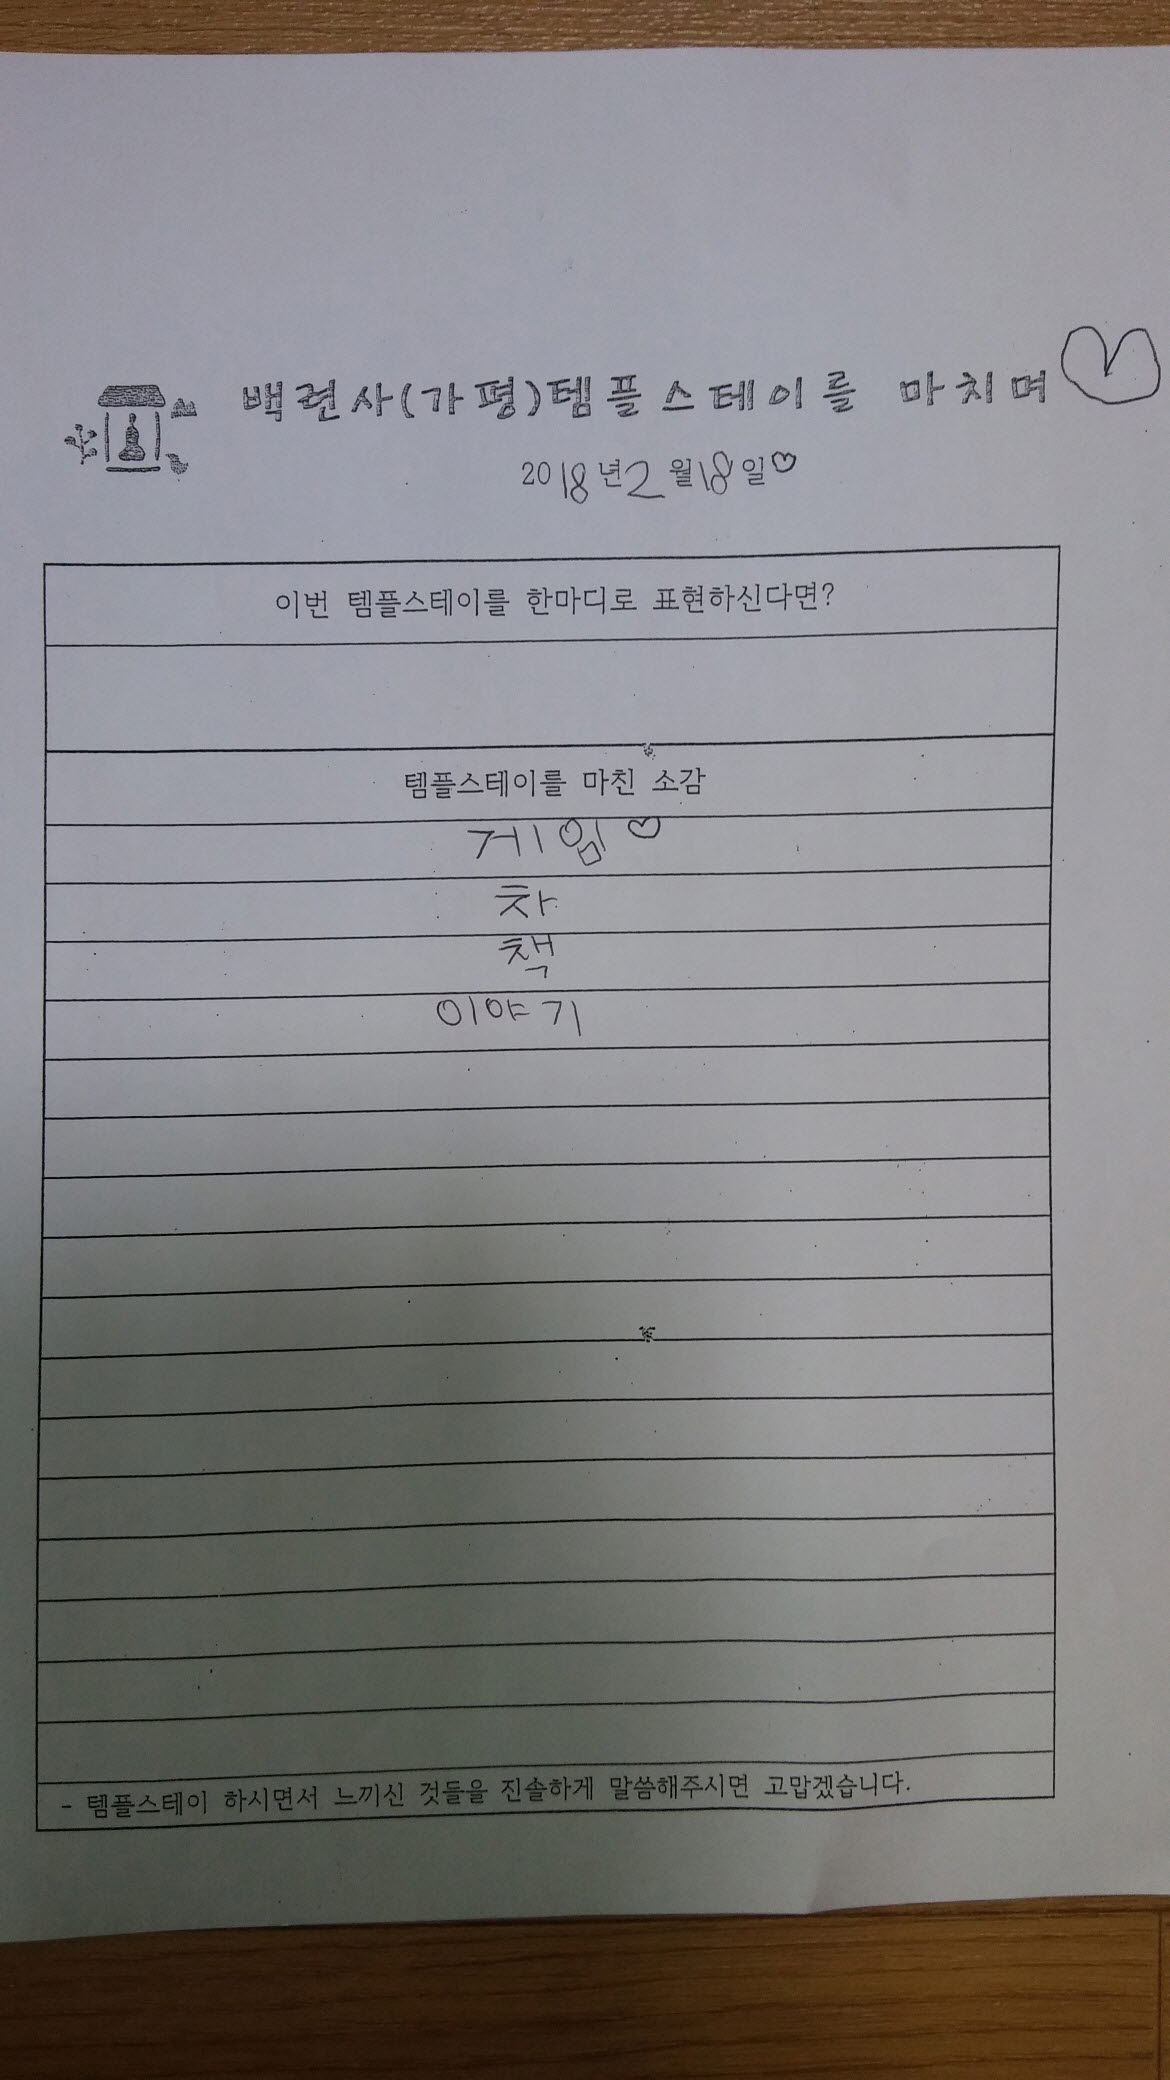 백련사(가평)템플스테이를 마치며
2018년 2월 18일♡
이번 템플스테이를 한마디로 표현하신다면?
템플스테이를 마친 소감
게임♡
차
책
이야기
- 템플스테이 하시면서 느끼신 것들을 진솔하게 말씀해주시면 고맙겠습니다.